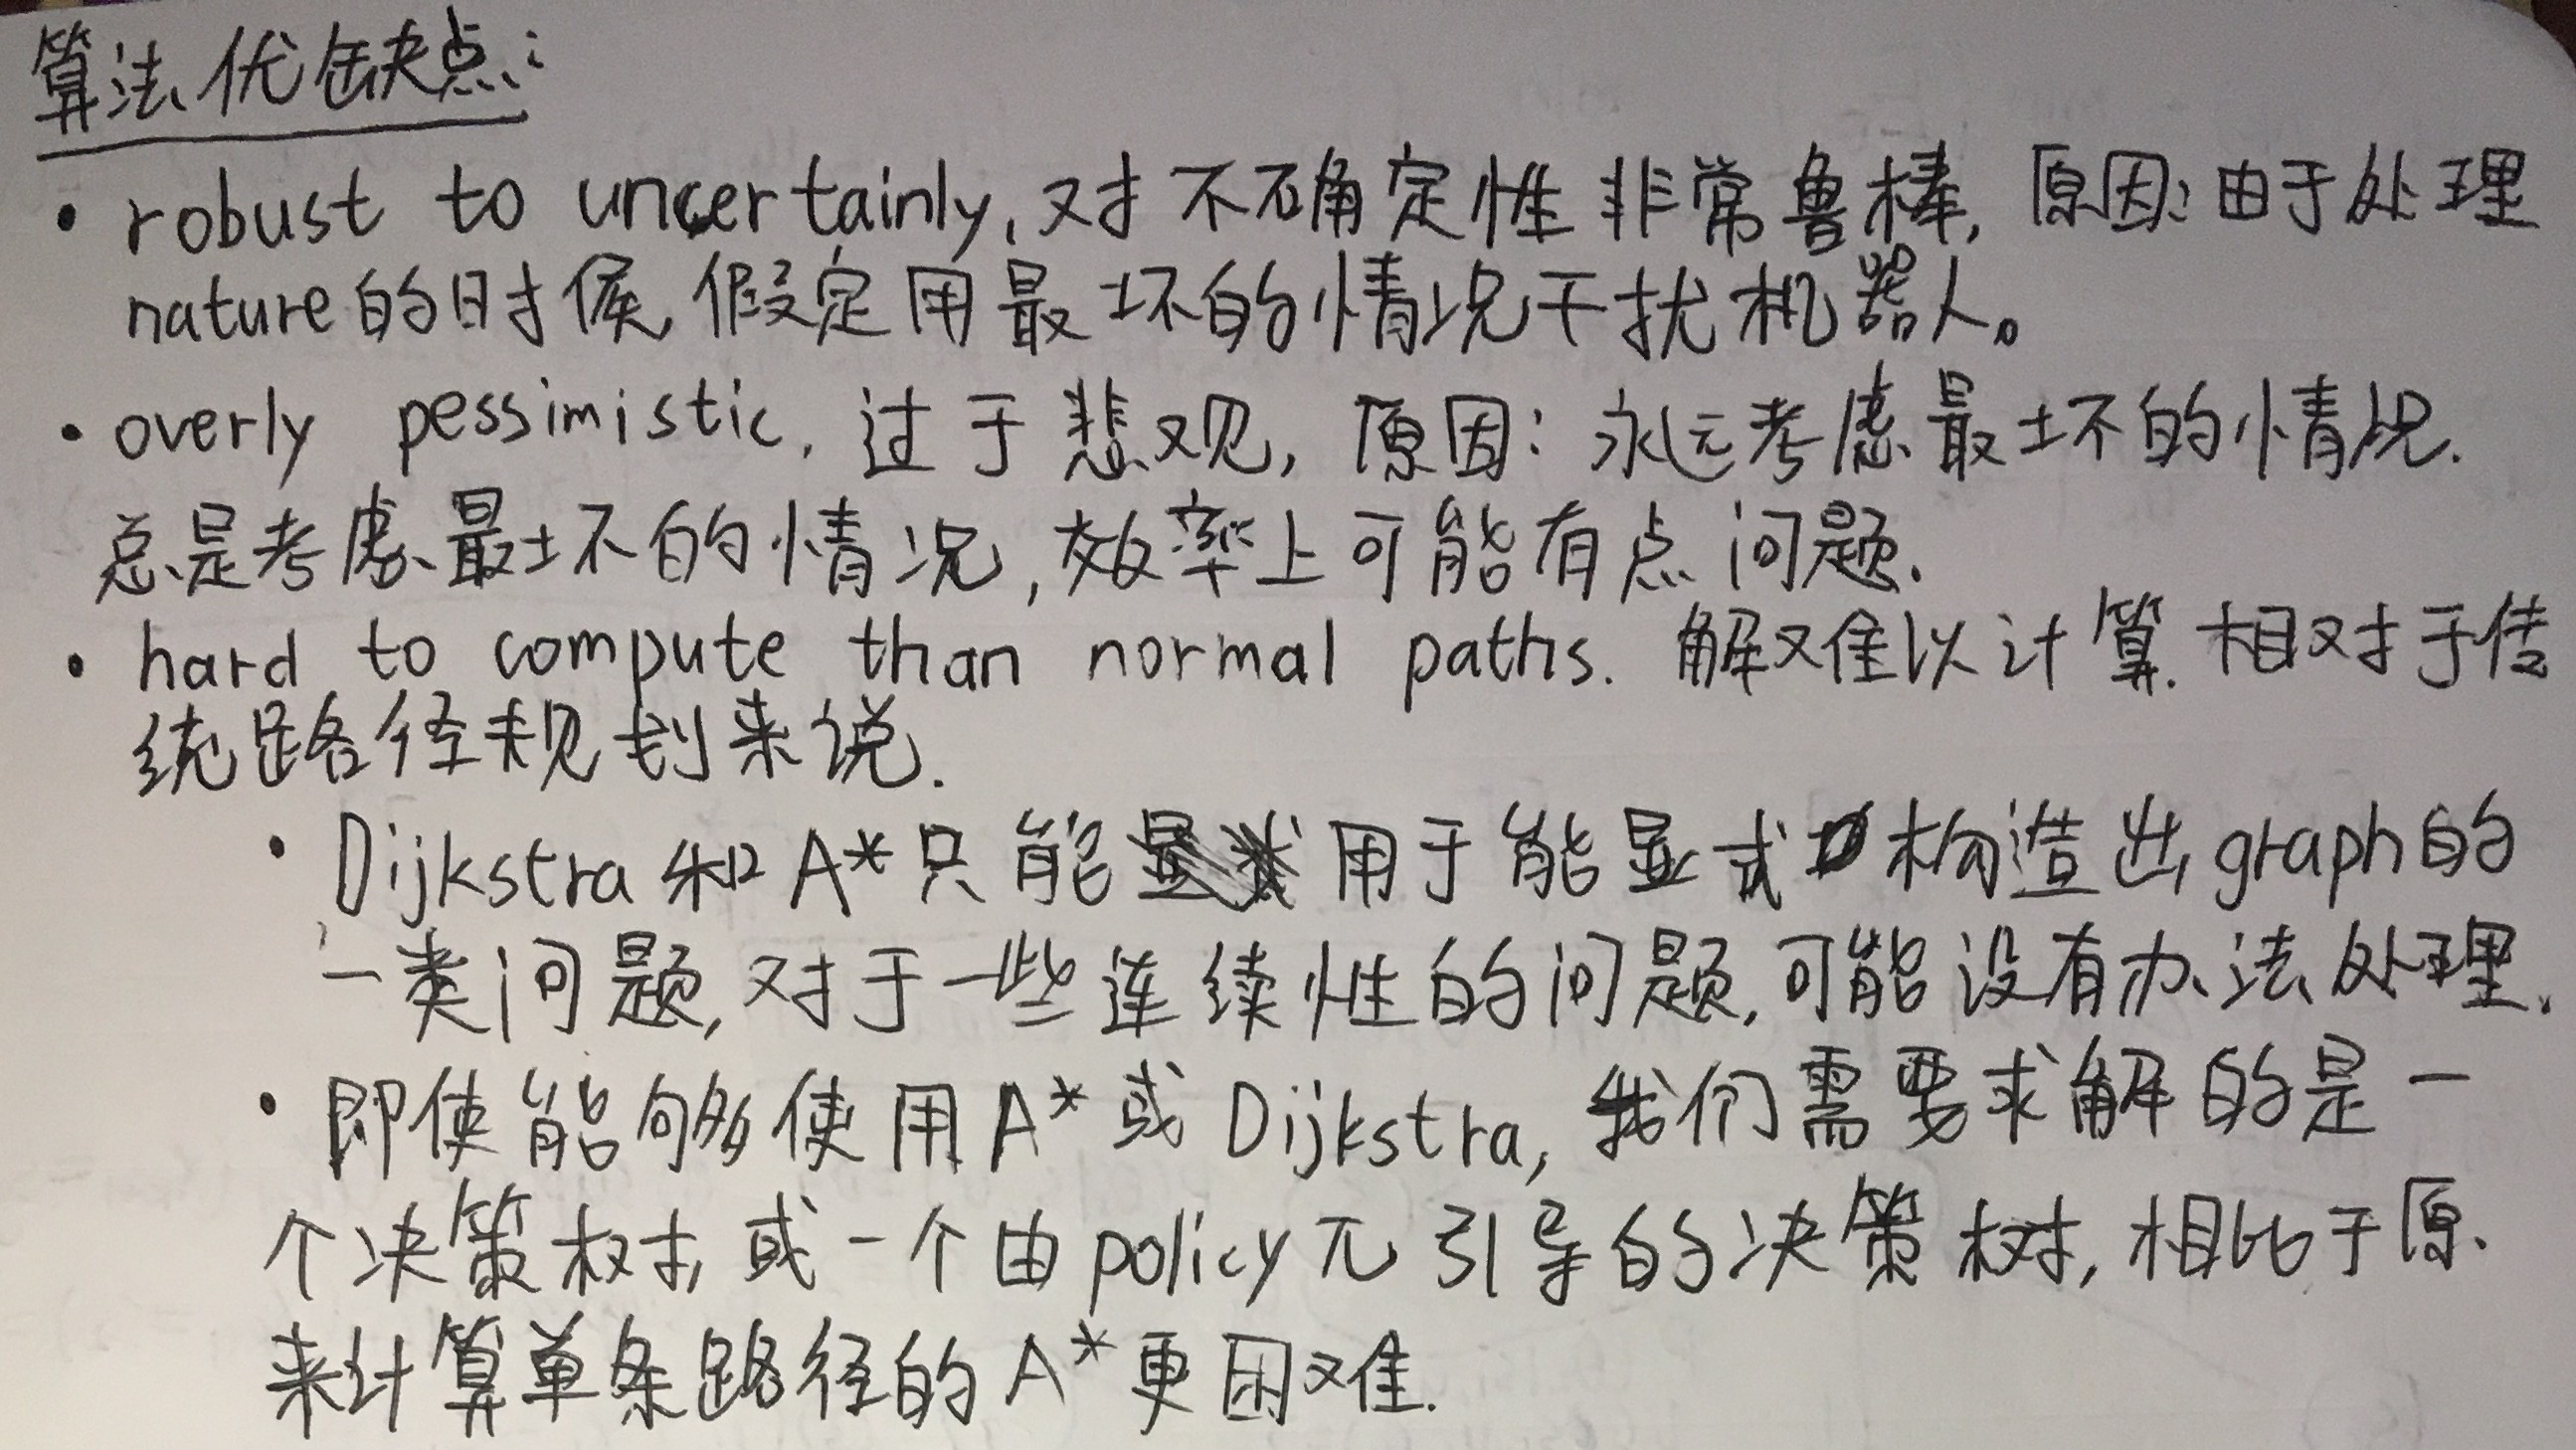 算法优缺点:
• robust to uncertainly, 对不确定性非常鲁棒, 原因: 由于处理
nature的时候, 假定用最坏的情况干扰机器人。
• overly pessimistic. 过于悲观, 原因: 永远考虑最坏的情况.
总是考虑最坏的情况, 效率上可能有点问题.
• hard to compute than normal paths. 解难以计算. 相对于传
统路径规划来说.
• Dijkstra和A*只能用于能显式构造出graph的
一类问题, 对于一些连续性的问题, 可能没有办法处理.
• 即使能够使用A*或Dijkstra, 我们需要求解的是一
个决策树, 或一个由policy π引导的决策树, 相比于原
来计算单条路径的A*更困难.